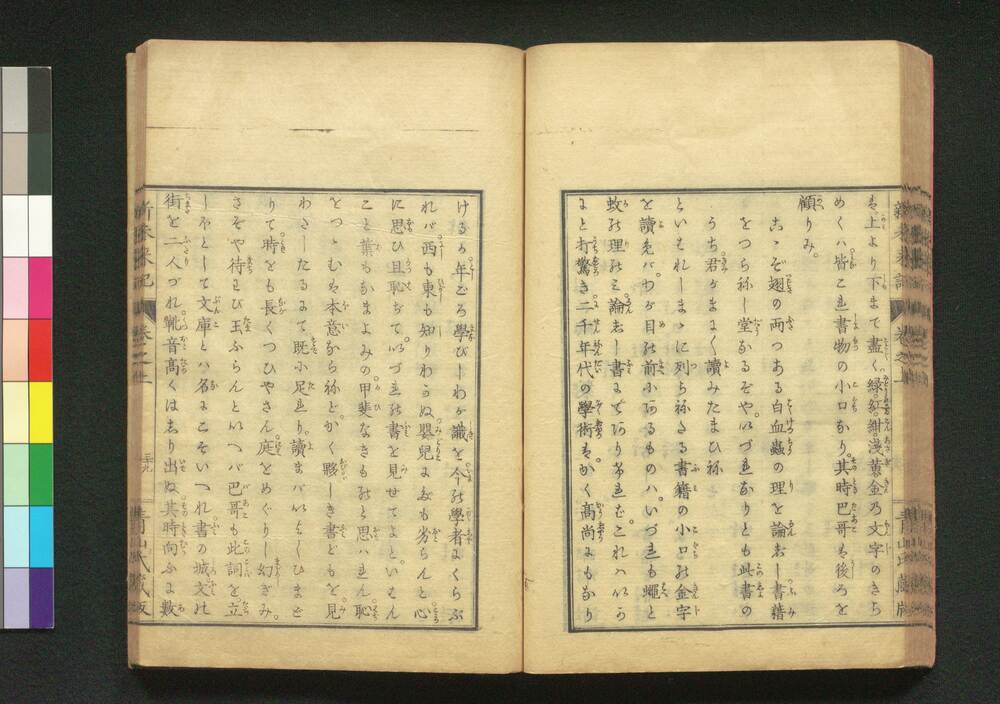 も上より下まで盡く緑。紅。紺。淺黄。金の文字のきら
めくハ皆これ書物の小口なり。其時巴哥も後ろを
顧りみ。
こゝぞ翅の両つある白血蟲の理を論ぜし書籍
をつらねし堂なるぞや。いづれなりとも此書の
うち君がまづ讀みたまひね
といはれしまゝに列らねたる書籍の小口の金字
を讀めバわが目の前にあるものハ。いづれも蠅と
蚊の理のミ論ぜし書にぞありければ。これハいか
にと打驚き二千年代の學術はかく高尚にもなり
新未来記 巻之上 青山氏蔵版
けるか年ごろ學びしわが識を今の學者にくらぶ
れバ西も東も知りわかぬ嬰兒にだも劣らんと心
に思ひ且恥ぢて。いづれの書を見せてよと。いはん
こと葉もなまよみの甲斐なきものと思ハれ恥
をつゝむも本意ならねどかく夥しき書どもを見
わたしたるにて既に足れり。讀まバいとゞしくひまど
りて時をも長くつひやさん庭をめぐりし幻ぎみ。
さぞや待わび玉ふらんといへバ巴哥も此詞を立
しほとして文庫とハ名にこそいへれ書の城文の
街を二人づれ靴音高くはしり出ぬ其時向ふに数
新未来記 巻之上 二十九 青山氏蔵版